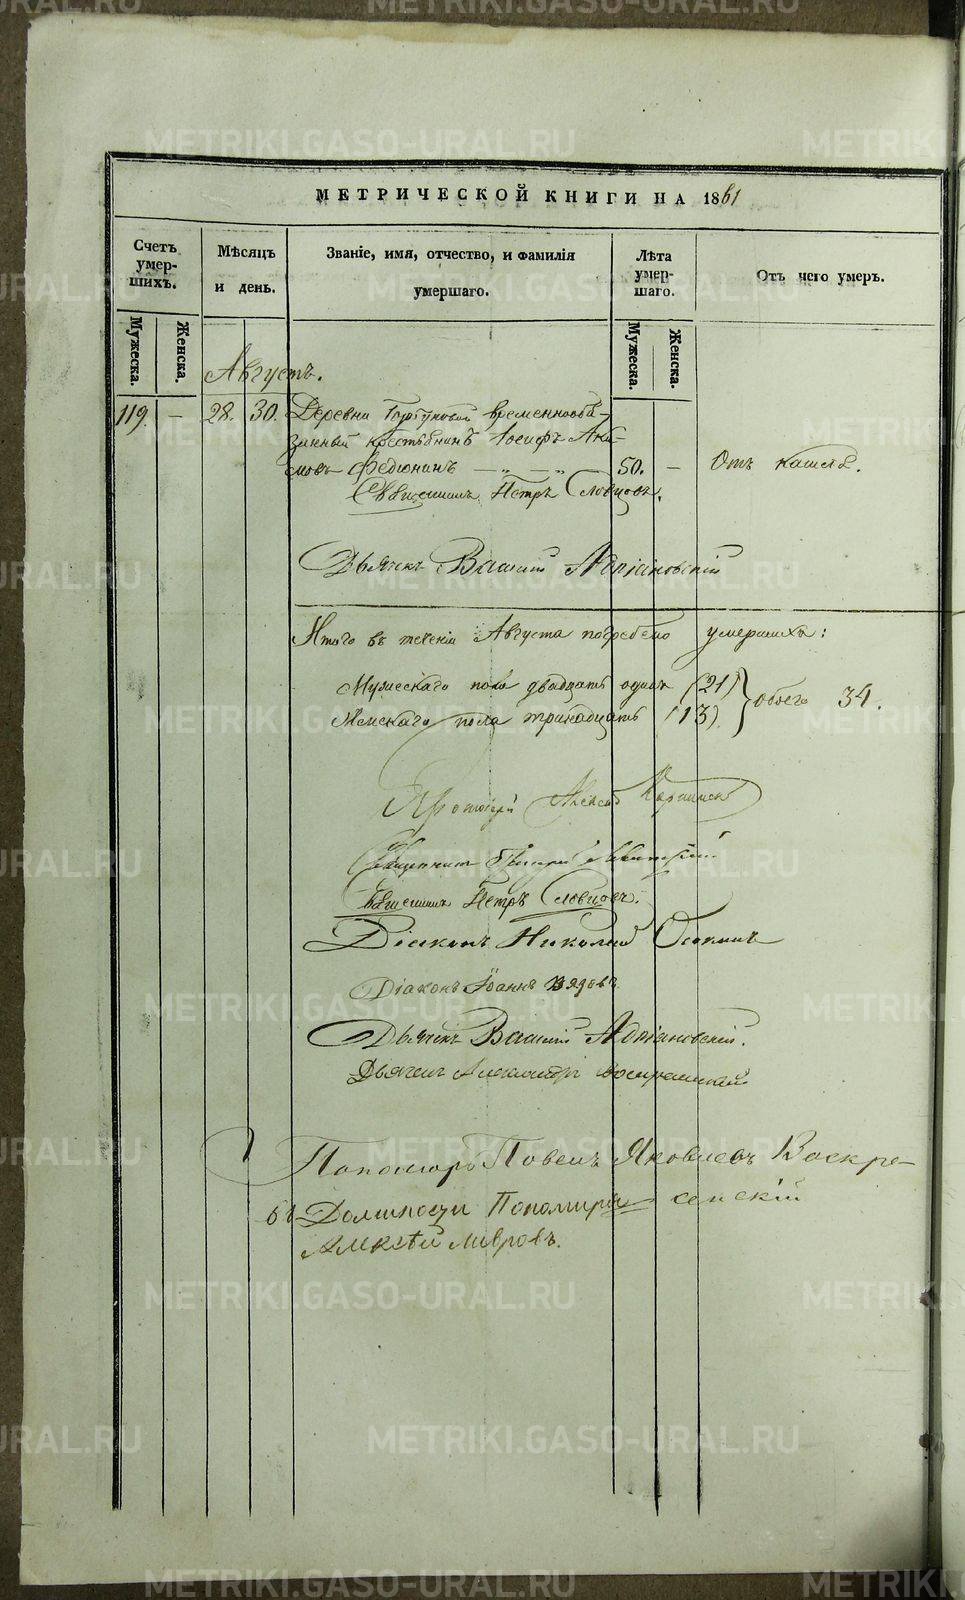 МЕТРИЧЕСКОЙ КНИГИ НА 1861
Счетъ умер-шихъ.
Мѣсяцъ и день.
Званіе, имя, отчество, и фамилія умершаго.
Лѣта умер-шаго.
Отъ чего умеръ.
Мужеска.
Женска.
Мужеска.
Женска.
Августъ.
119. — 28. 30. Деревни временнообя-
занный крестьянинъ Іосифъ Аки-
мовъ Федюнинъ — „ — „ 50. — Отъ кашля.
Священникъ Петръ Словцовъ.
Дьячекъ Василій Адріановскій
Итого въ теченіи Августа погребено умершихъ:
Мужескаго пола двадцать одинъ (21)
Женскаго пола тринадцать (13) } обоего 34.
Протоіерей
Священникъ
Священникъ Петръ Словцовъ.
Діаконъ Николай Осокинъ
Діаконъ Іоаннъ
Дьячекъ Василій Адріановскій.
Дьячекъ Александръ Воскресенскій
Пономарь Павелъ Яковлевъ Воскре-
сенскій
въ Должности Пономаря
Алексѣй Лавровъ.
METRIKI.GASO-URAL.RU